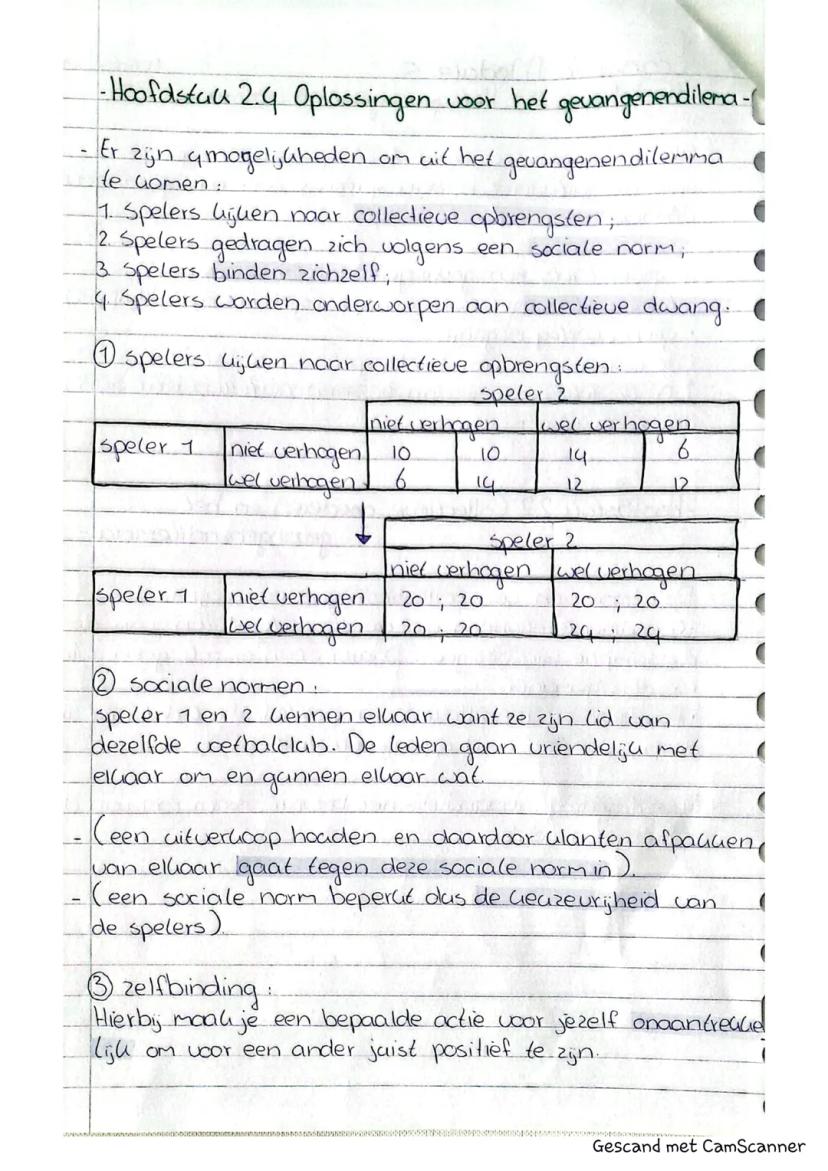 -Hoofdstuk 2.4 Oplossingen voor het gevangenendilema-
- Er zijn 4 mogelijkheden om uit het gevangenendilemma
te komen:
1. Spelers kijken naar collectieve opbrengsten;
2. Spelers gedragen zich volgens een sociale norm;
3. Spelers binden zichzelf;
4. Spelers worden onderworpen aan collectieve dwang.
① spelers kijken naar collectieve opbrengsten:
speler 2
niet verhogen wel verhogen
speler 1 niet verhogen 10 10 14 6
wel verhogen 6 14 12 12
speler 2
niet verhogen wel verhogen
speler 1 niet verhogen 20 ; 20 20 ; 20
wel verhogen 20 ; 20 24 ; 24
② sociale normen:
speler 1 en 2 kennen elkaar want ze zijn lid van
dezelfde voetbalclub. De leden gaan vriendelijk met
elkaar om en gunnen elkaar wat.
- (een uitverkoop houden en daardoor klanten afpakken
van elkaar gaat tegen deze sociale norm in).
- (een sociale norm beperkt dus de keuzevrijheid van
de spelers).
③ zelfbinding:
Hierbij maak je een bepaalde actie voor jezelf onaantrekke
lijk om voor een ander juist positief te zijn.
Gescand met CamScanner